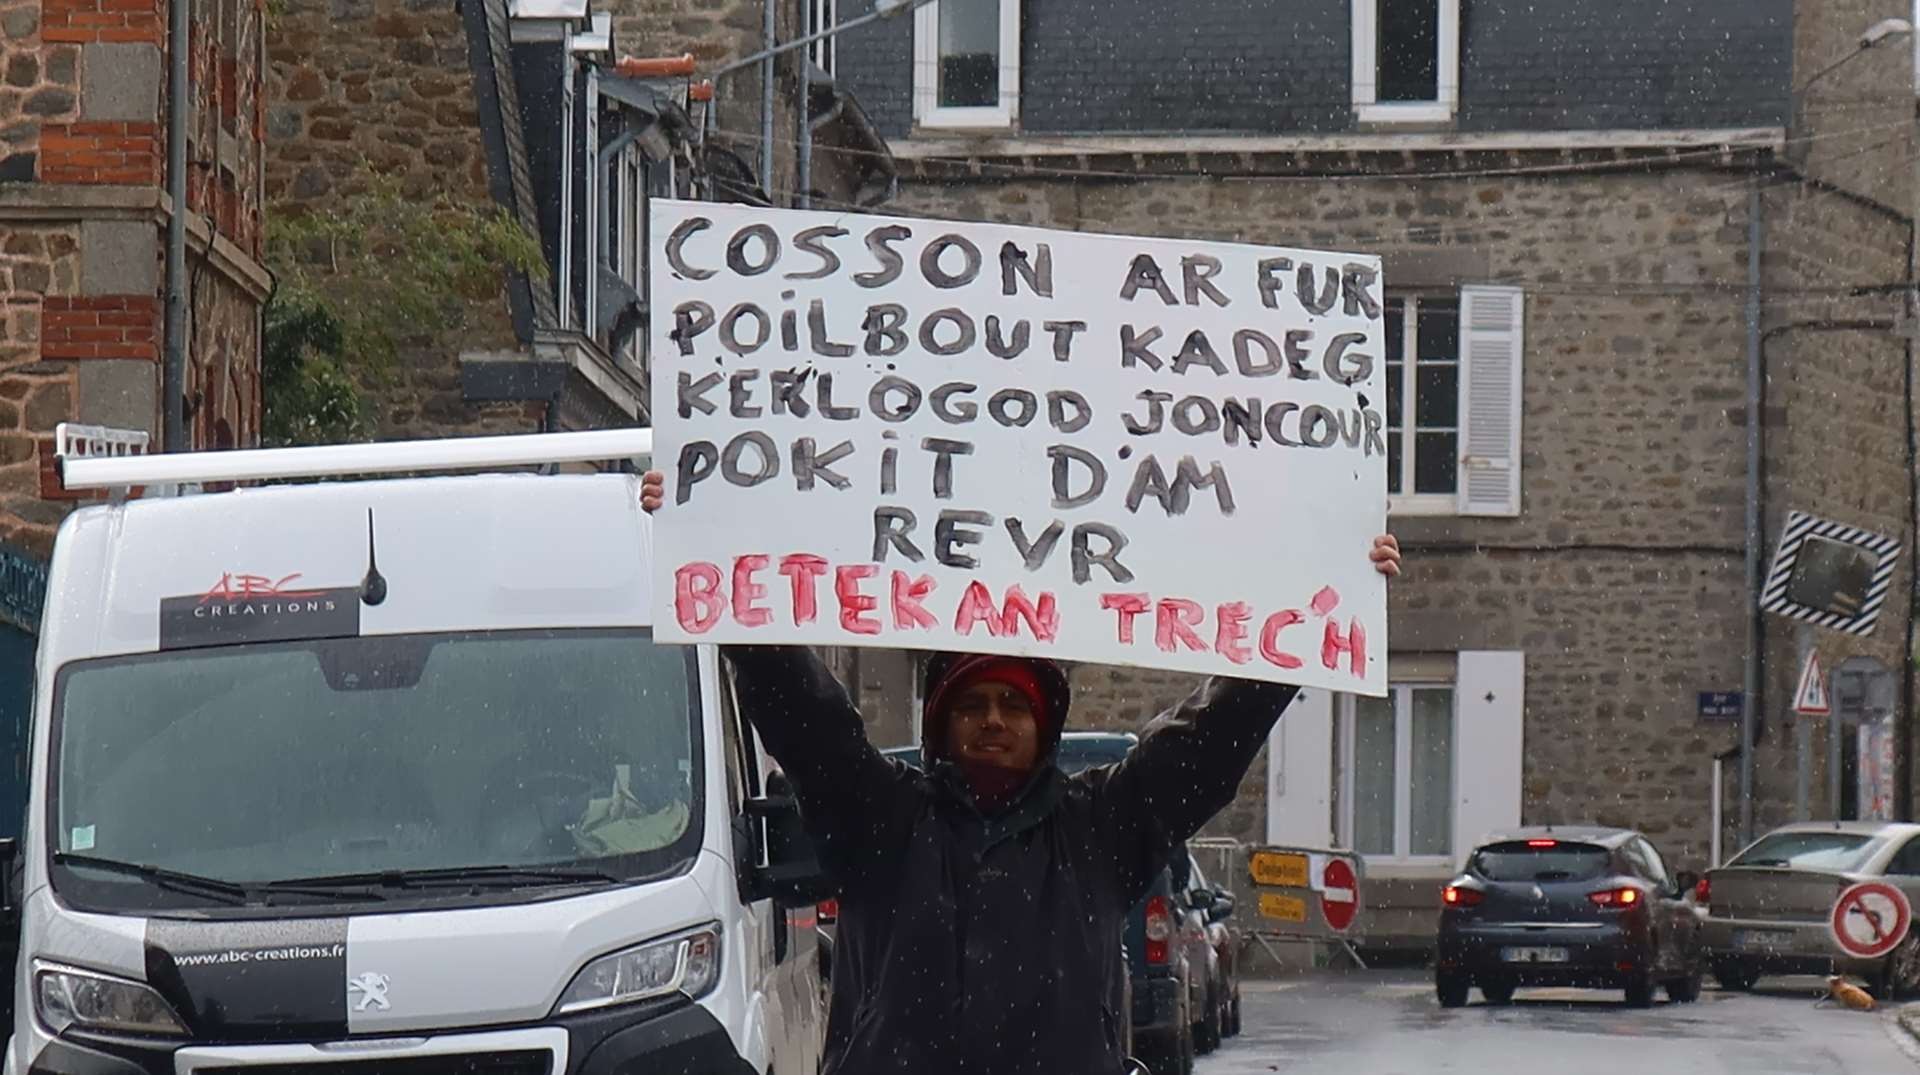 COSSON AR FUR
POILBOUT KADEG
KERLOGOD JONCOUR
POKIT D'AM
REVR
BETEK AN TREC'H
ABC
CREATIONS
www.abc-creations.fr